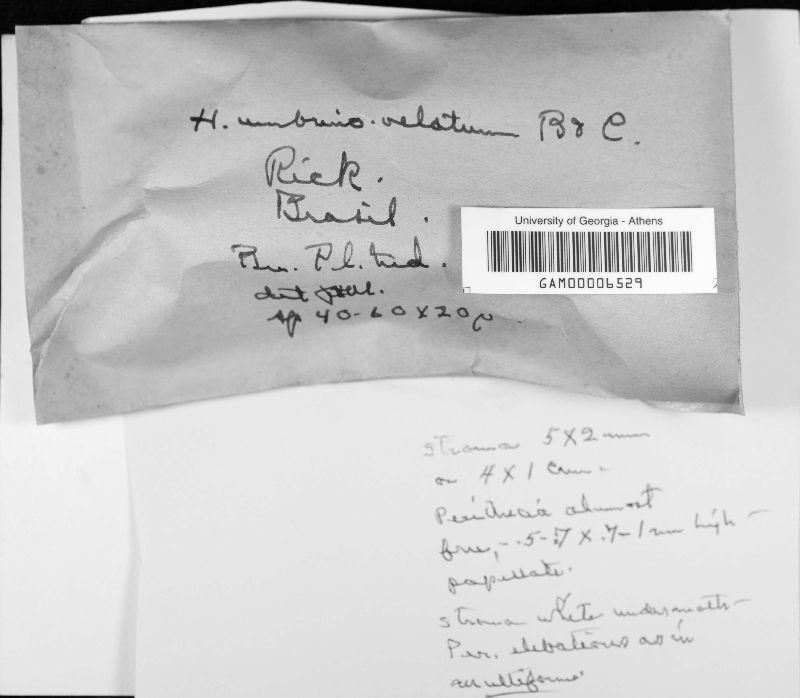 H. umbrino-velatum B & C.
Rick.
Brasil.
Bu. Pl. Ind.
det
sp 40-60 X 20 µ.
University of Georgia - Athens
GAM00006529
stroma 5 X 2 mm
or 4 X 1 cm.
Perithecia almost
free, - .5-.7 X .7-1 mm high -
papillate.
stroma white underneath -
Per. elevations as in
multiforme.